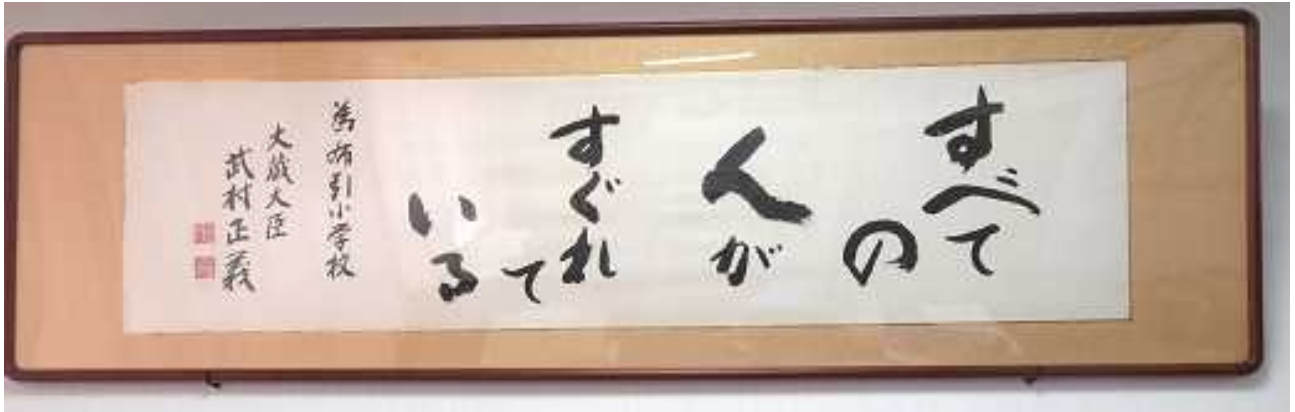 すべて
の
人が
すぐれ
て
いる
為布引小学校
大蔵大臣
武村正義